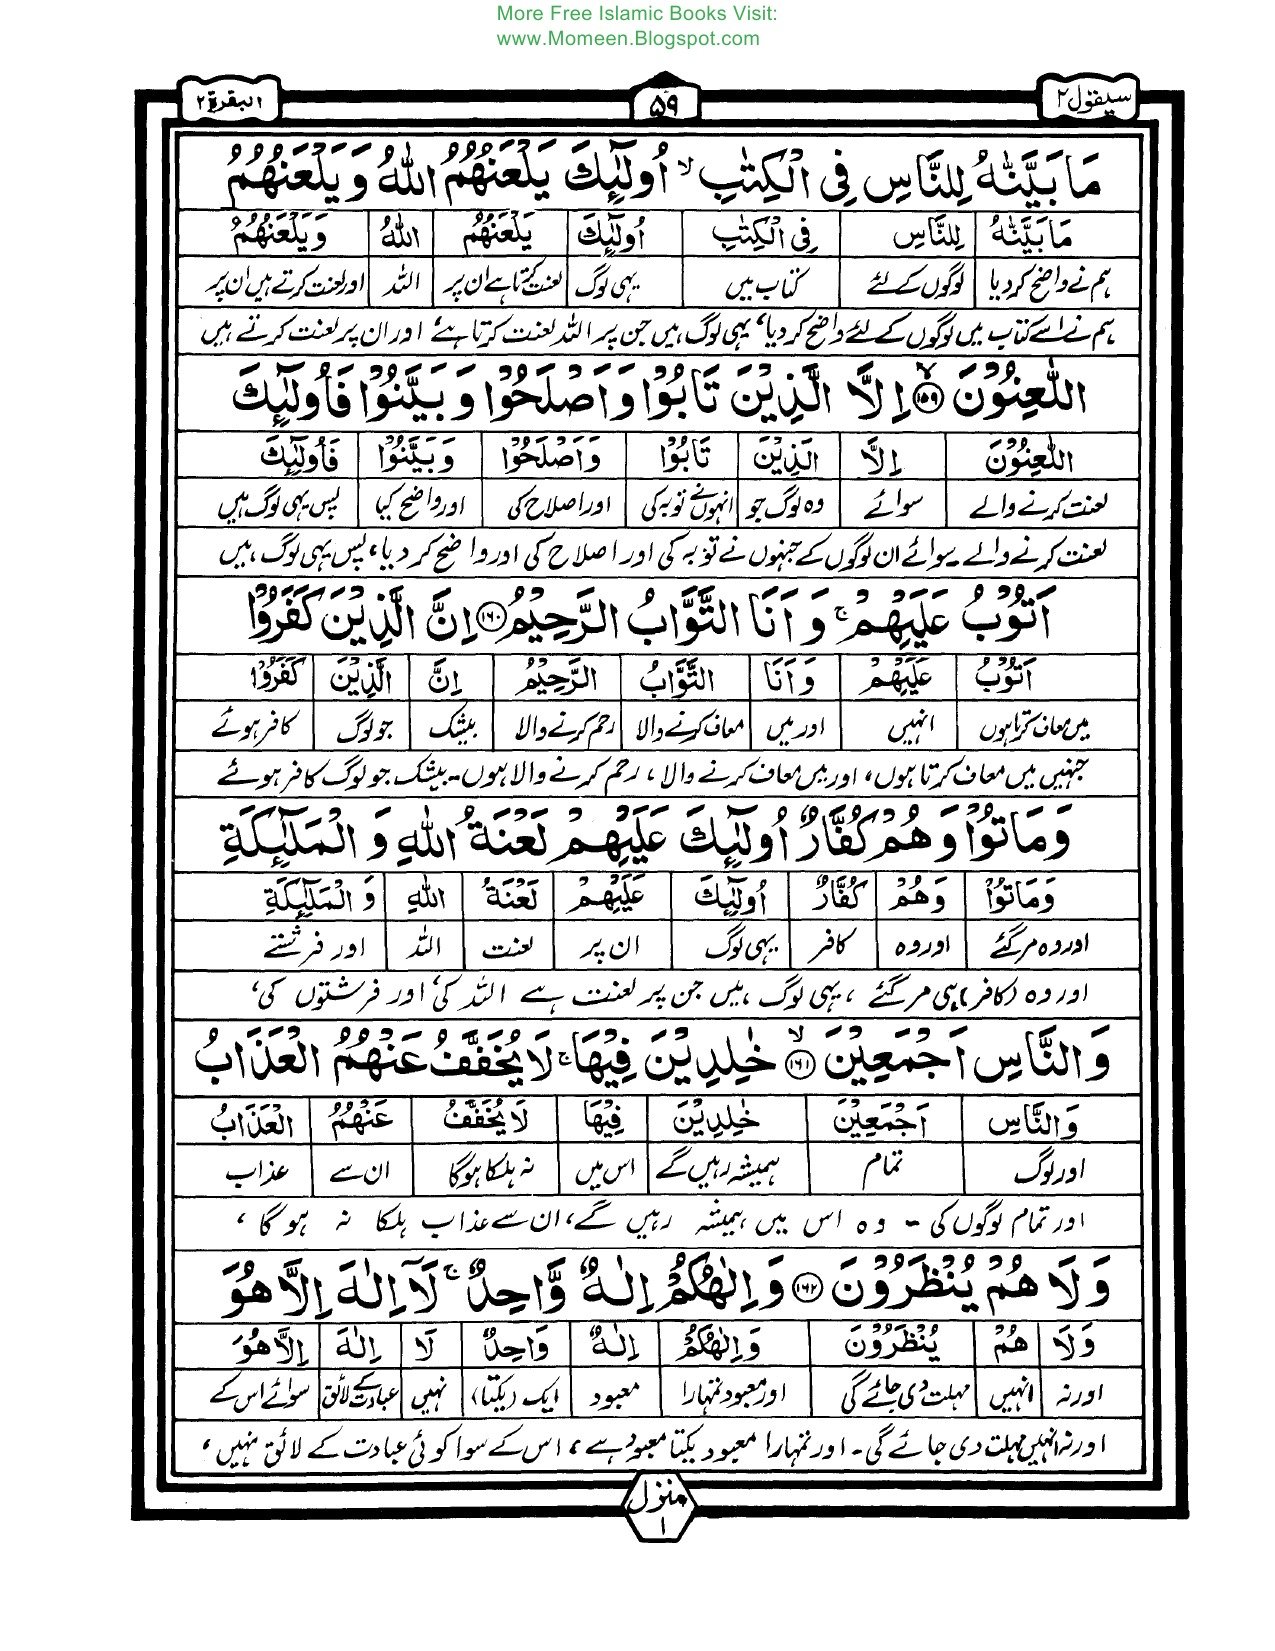 More Free Islamic Books Visit:
www.Momeen.Blogspot.com
سیقول ۲ ۵۹ البقرة ۲
مَا بَيَّنّٰهُ لِلنَّاسِ فِي الْكِتٰبِ ۙ اُولٰٓئِكَ يَلْعَنُهُمُ اللّٰهُ وَيَلْعَنُهُمُ
مَا بَيَّنّٰهُ لِلنَّاسِ فِي الْكِتٰبِ اُولٰٓئِكَ يَلْعَنُهُمُ اللّٰهُ وَيَلْعَنُهُمُ
ہم نے واضح کردیا لوگوں کے لئے کتاب میں یہی لوگ لعنت کرتا ہے ان پر اللہ اور لعنت کرتے ہیں ان پر
ہم نے اسے کتاب میں لوگوں کے لئے واضح کردیا، یہی لوگ ہیں جن پر اللہ لعنت کرتا ہے، اور ان پر لعنت کرتے ہیں
اللّٰعِنُوْنَ ۙ۱۵۹ اِلَّا الَّذِيْنَ تَابُوْا وَاَصْلَحُوْا وَبَيَّنُوْا فَاُولٰٓئِكَ
اللّٰعِنُوْنَ اِلَّا الَّذِيْنَ تَابُوْا وَاَصْلَحُوْا وَبَيَّنُوْا فَاُولٰٓئِكَ
لعنت کرنے والے سوائے وہ لوگ جو انہوں نے توبہ کی اور اصلاح کی اور واضح کیا پس یہی لوگ ہیں
لعنت کرنے والے۔ سوائے ان لوگوں کے جنہوں نے توبہ کی اور اصلاح کی اور واضح کر دیا، پس یہی لوگ ہیں
اَتُوْبُ عَلَيْهِمْ ۚ وَاَنَا التَّوَّابُ الرَّحِيْمُ ۱۶۰ اِنَّ الَّذِيْنَ كَفَرُوْا
اَتُوْبُ عَلَيْهِمْ وَاَنَا التَّوَّابُ الرَّحِيْمُ اِنَّ الَّذِيْنَ كَفَرُوْا
میں معاف کرتا ہوں انہیں اور میں معاف کرنے والا رحم کرنے والا بیشک جو لوگ کافر ہوئے
جنہیں میں معاف کرتا ہوں، اور میں معاف کرنے والا، رحم کرنے والا ہوں۔ بیشک جو لوگ کافر ہوئے
وَمَاتُوْا وَهُمْ كُفَّارٌ اُولٰٓئِكَ عَلَيْهِمْ لَعْنَةُ اللّٰهِ وَالْمَلٰٓئِكَةِ
وَمَاتُوْا وَهُمْ كُفَّارٌ اُولٰٓئِكَ عَلَيْهِمْ لَعْنَةُ اللّٰهِ وَالْمَلٰٓئِكَةِ
اور وہ مر گئے اور وہ کافر یہی لوگ ان پر لعنت اللہ اور فرشتے
اور وہ (کافر) ہی مر گئے، یہی لوگ ہیں جن پر لعنت ہے اللہ کی، اور فرشتوں کی،
وَالنَّاسِ اَجْمَعِيْنَ ۙ۱۶۱ خٰلِدِيْنَ فِيْهَا ۚ لَا يُخَفَّفُ عَنْهُمُ الْعَذَابُ
وَالنَّاسِ اَجْمَعِيْنَ خٰلِدِيْنَ فِيْهَا لَا يُخَفَّفُ عَنْهُمُ الْعَذَابُ
اور لوگ تمام ہمیشہ رہیں گے اس میں نہ ہلکا ہوگا ان سے عذاب
اور تمام لوگوں کی۔ وہ اس میں ہمیشہ رہیں گے، ان سے عذاب ہلکا نہ ہوگا،
وَلَا هُمْ يُنْظَرُوْنَ ۱۶۲ وَاِلٰهُكُمْ اِلٰهٌ وَّاحِدٌ ۚ لَآ اِلٰهَ اِلَّا هُوَ
وَلَا هُمْ يُنْظَرُوْنَ وَاِلٰهُكُمْ اِلٰهٌ وَاحِدٌ لَا اِلٰهَ اِلَّا هُوَ
اور نہ انہیں مہلت دی جائے گی اور معبود تمہارا معبود ایک (یکتا) نہیں عبادت کے لائق سوائے اس کے
اور نہ انہیں مہلت دی جائے گی۔ اور تمہارا معبود یکتا معبود ہے، اس کے سوا کوئی عبادت کے لائق نہیں،
منزل
۱